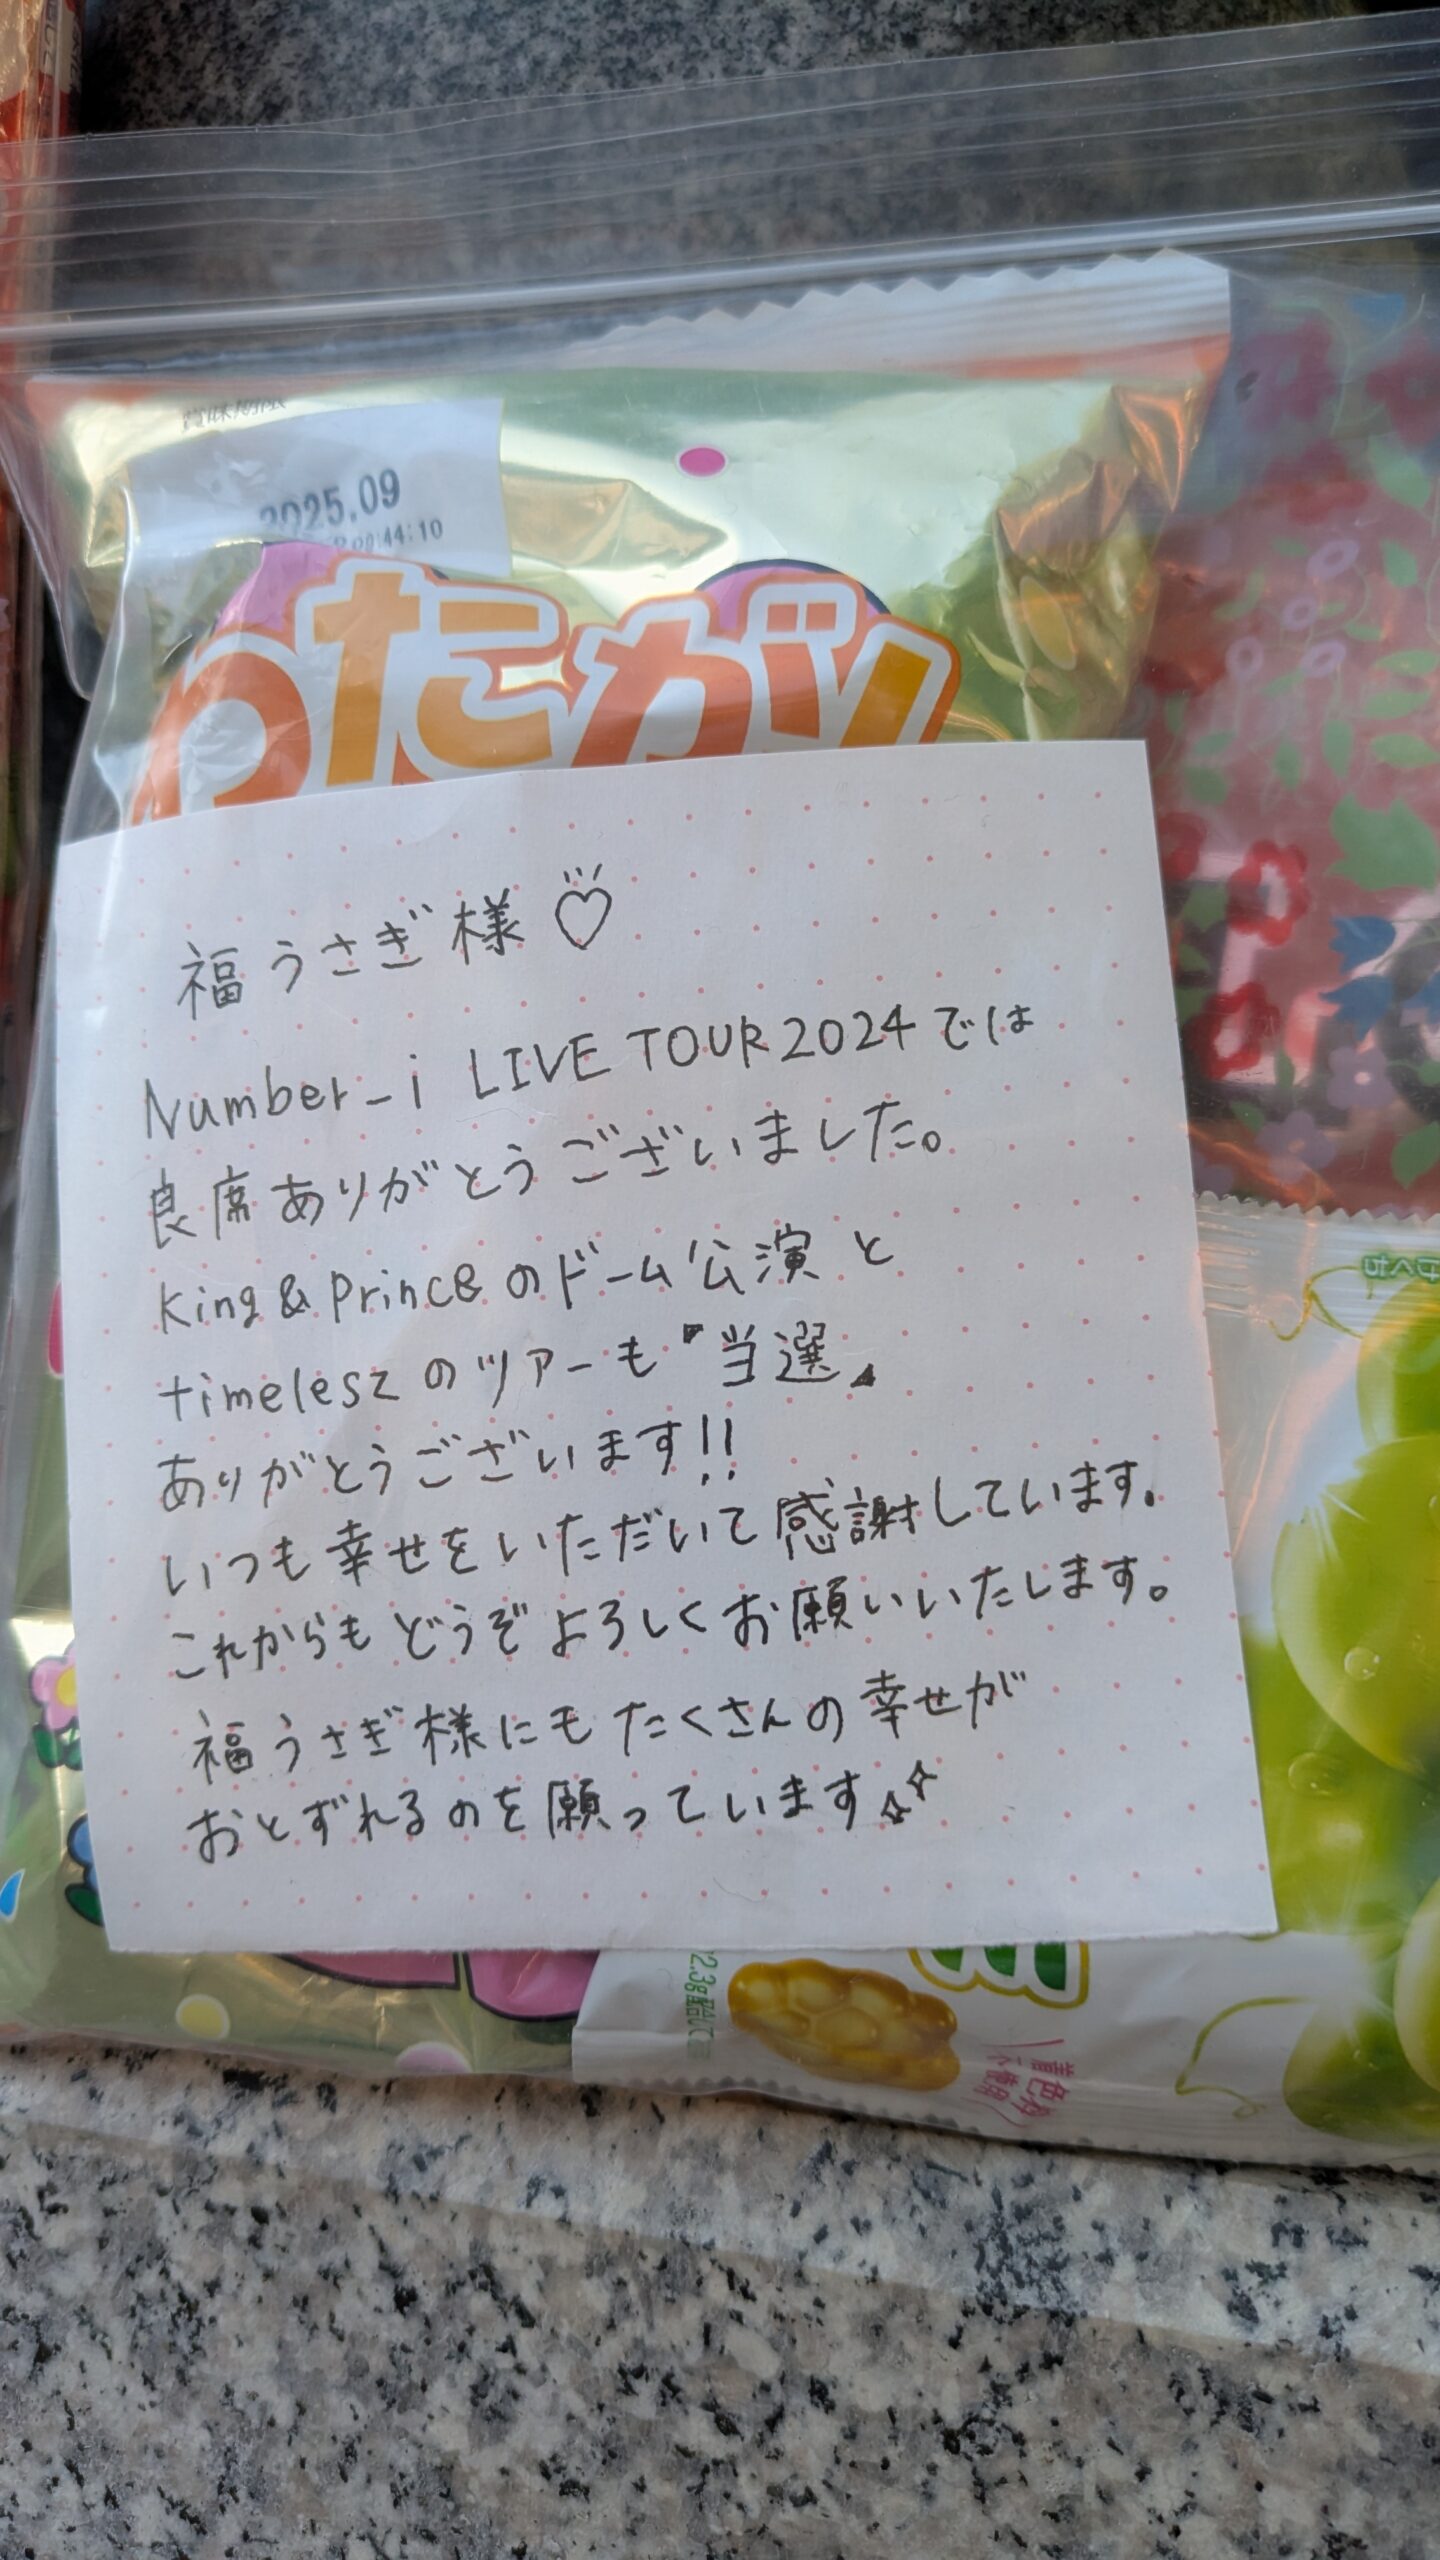 賞味期限
2025.09
:44:10
わたがし
福うさぎ様♡
Number_i LIVE TOUR 2024では
良席ありがとうございました。
King & Princeのドーム公演と
timeleszのツアーも『当選』
ありがとうございます!!
いつも幸せをいただいて感謝しています。
これからもどうぞよろしくお願いいたします。
福うさぎ様にもたくさんの幸せが
おとずれるのを願っています